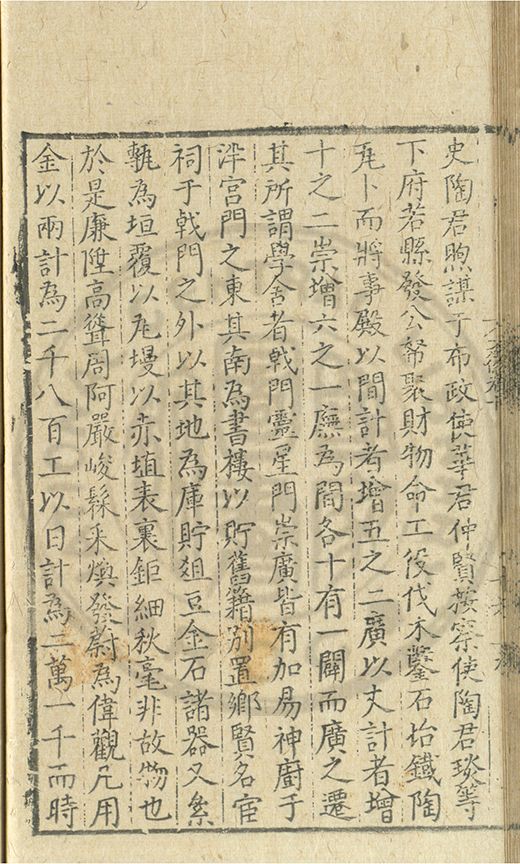 史陶君煦謀于布政使華君仲賢按察使陶君琰等
下府若縣發公帑聚財物命工役伐木鑿石冶鐵陶
㼚卜而將事殿以間計者增五之二廣以丈計者增
十之二崇增六之一廡為間各十有一闢而廣之遷
其所謂學舍者戟門靈星門崇廣皆有加易神廚于
泮宮門之東其南為書樓以貯舊籍別置鄉賢名宦
祠于戟門之外以其地為庫貯俎豆金石諸器又絫
甎為垣覆以瓦墁以赤埴表裏鉅細秋毫非故物也
於是廉陛高聳周阿嚴峻髹采煥發蔚為偉觀凡用
金以兩計為二千八百工以日計為二萬一千而時